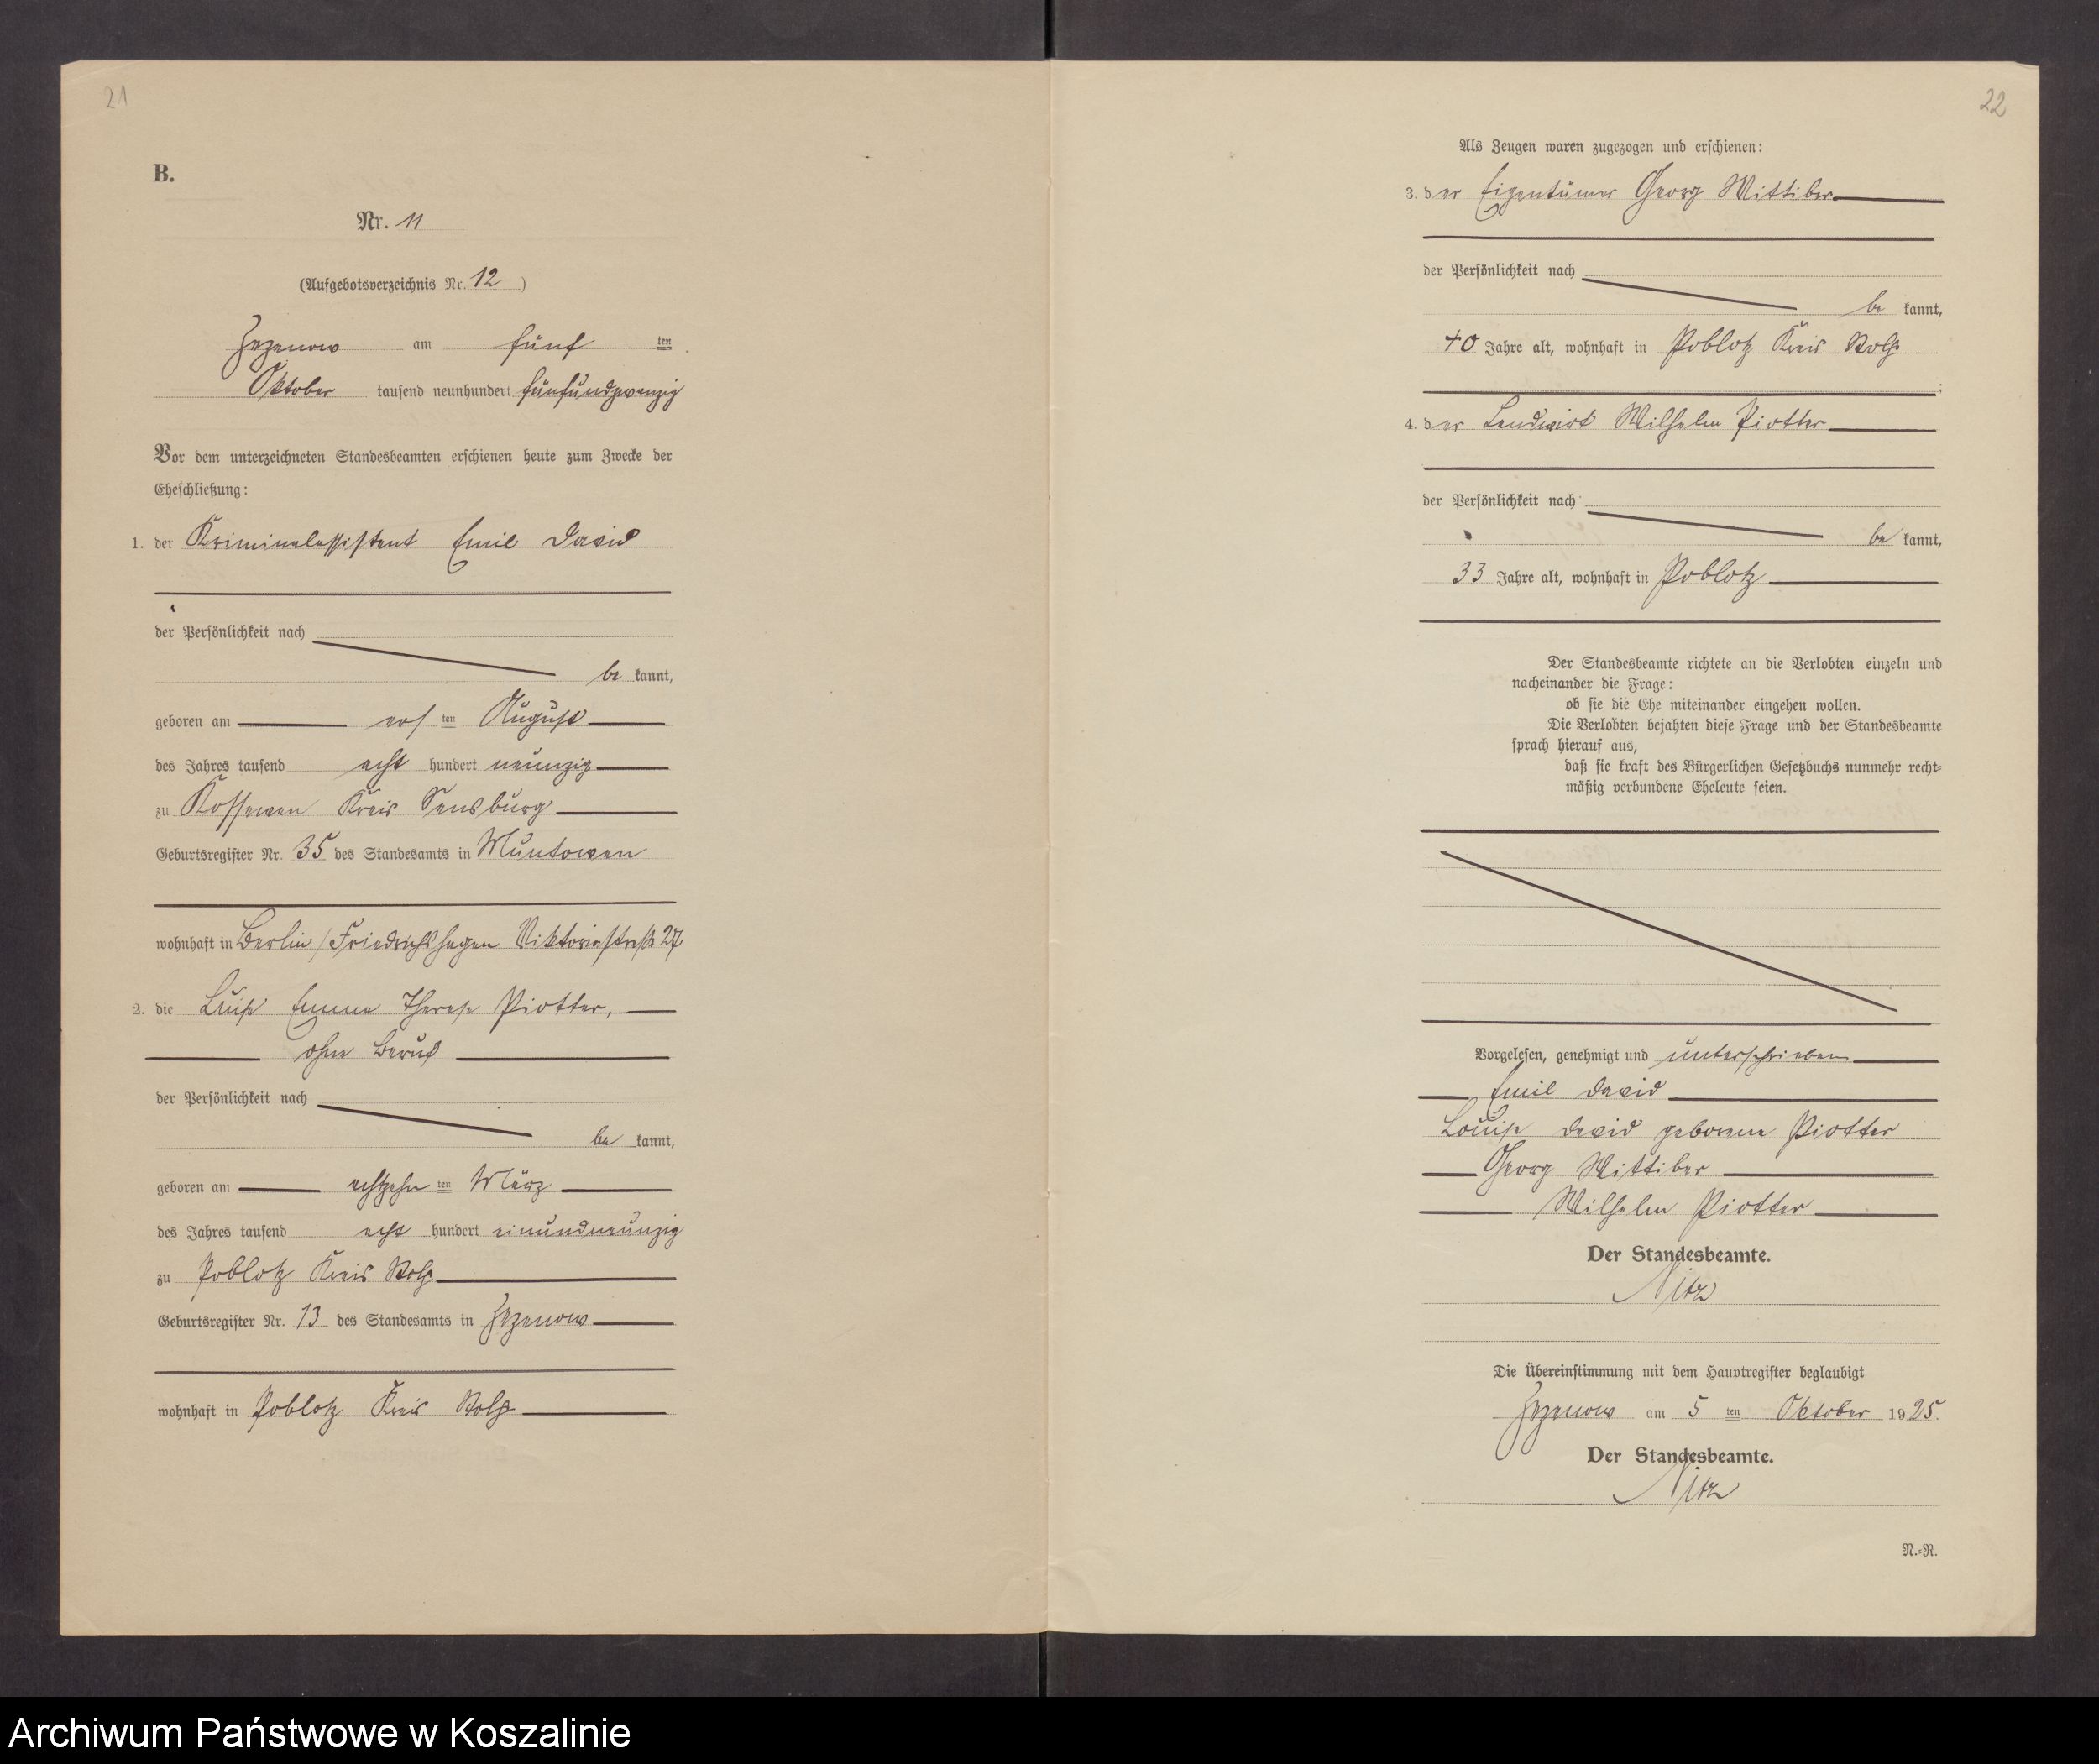 21
B.
Nr. 11
(Aufgebotsverzeichnis Nr. 12)
Zezenow am fünf ten
Oktober tausend neunhundert fünfundzwanzig
Vor dem unterzeichneten Standesbeamten erschienen heute zum Zwecke der
Eheschließung:
1. der Kriminalassistent Emil David
der Persönlichkeit nach
be kannt,
geboren am ersten August
des Jahres tausend acht hundert neunzig
zu Kossewen Kreis Sensburg
Geburtsregister Nr. 35 des Standesamts in Muntowen
wohnhaft in Berlin/Friedrichshagen Viktoriastraße 27
2. die Luise Emma Therese Piotter,
ohne Beruf
der Persönlichkeit nach
be kannt,
geboren am achtzehn ten März
des Jahres tausend acht hundert einundneunzig
zu Poblotz Kreis Stolp
Geburtsregister Nr. 13 des Standesamts in Zezenow
wohnhaft in Poblotz Kreis Stolp
22
Als Zeugen waren zugezogen und erschienen:
3. der Eigentümer Georg Wittiber
der Persönlichkeit nach
be kannt,
40 Jahre alt, wohnhaft in Poblotz Kreis Stolp
;
4. der Landwirt Wilhelm Piotter
der Persönlichkeit nach
be kannt,
33 Jahre alt, wohnhaft in Poblotz
Der Standesbeamte richtete an die Verlobten einzeln und
nacheinander die Frage:
ob sie die Ehe miteinander eingehen wollen.
Die Verlobten bejahten diese Frage und der Standesbeamte
sprach hierauf aus,
daß sie kraft des Bürgerlichen Gesetzbuchs nunmehr recht-
mäßig verbundene Eheleute seien.
Vorgelesen, genehmigt und unterschrieben
Emil David
Louise David geborene Piotter
Georg Wittiber
Wilhelm Piotter
Der Standesbeamte.
Nitz
Die Übereinstimmung mit dem Hauptregister beglaubigt
Zezenow am 5 ten Oktober 1925.
Der Standesbeamte.
Nitz
N.-R.
Archiwum Państwowe w Koszalinie